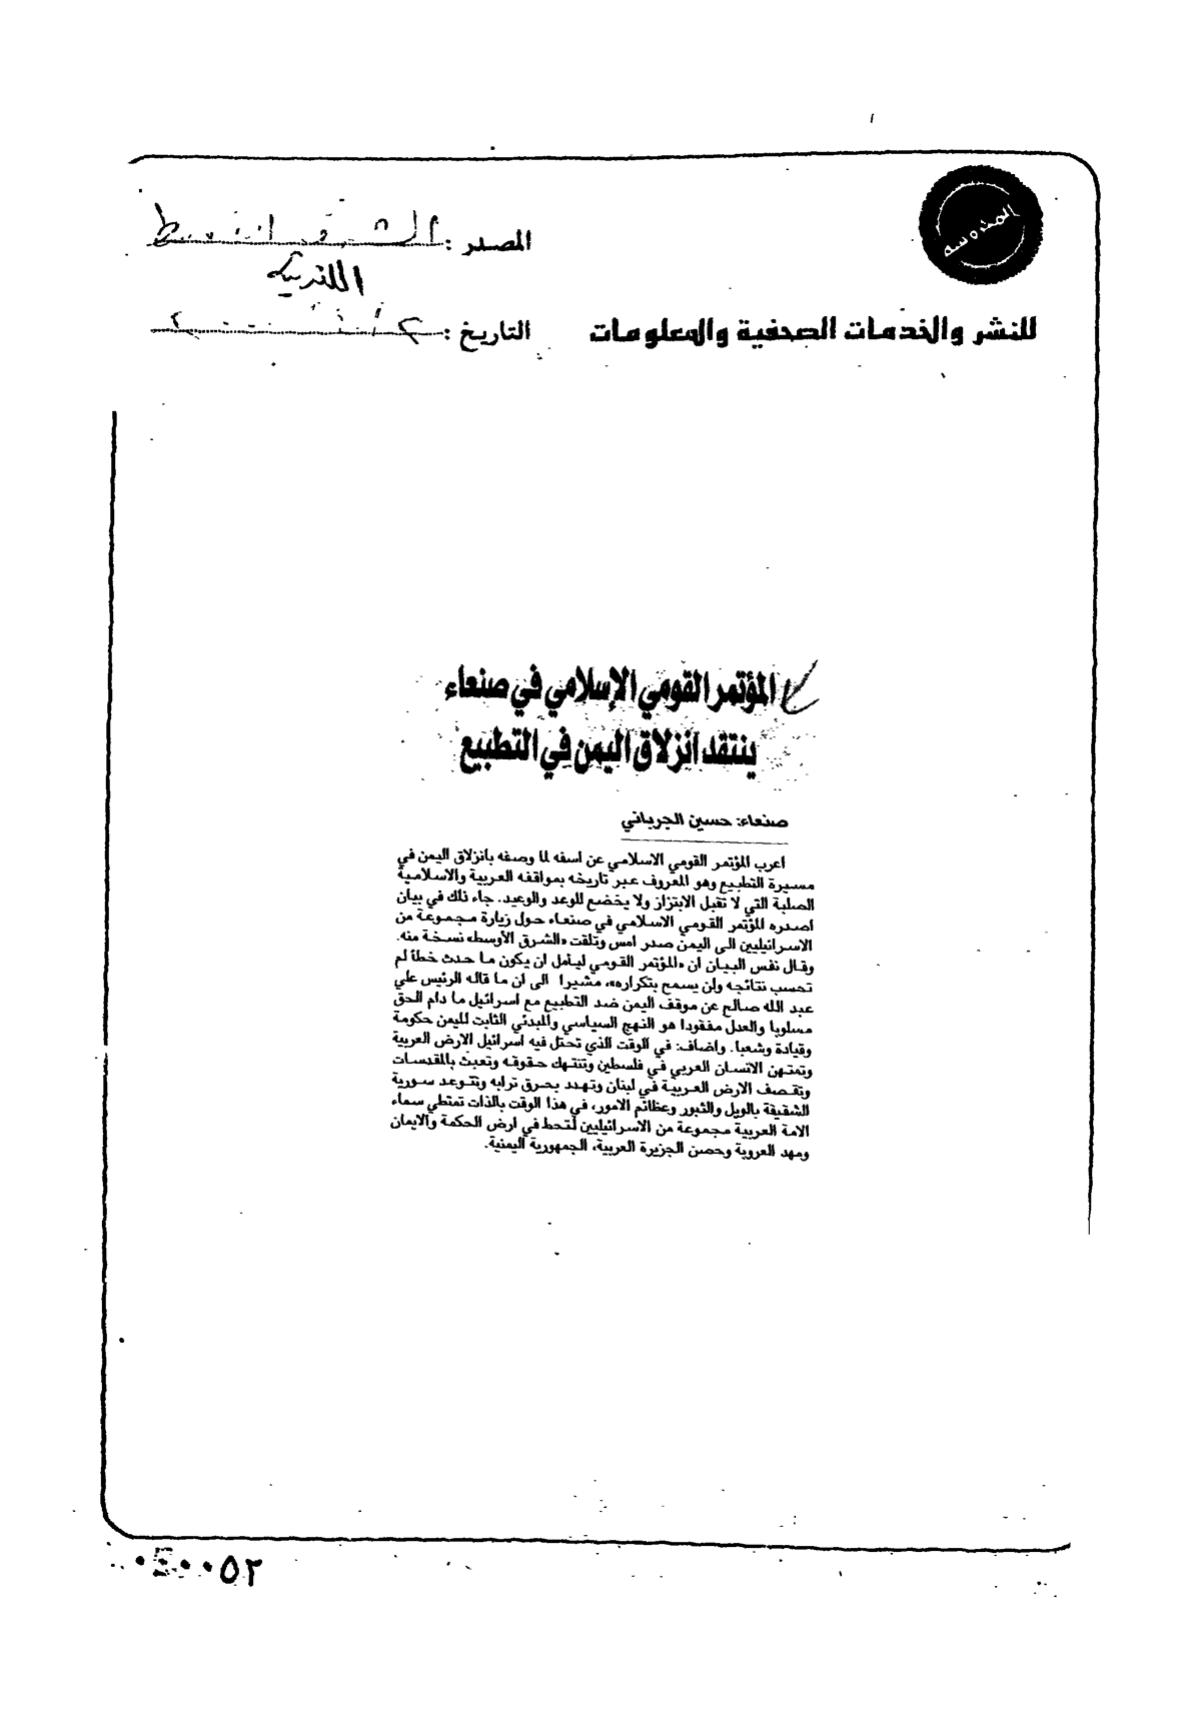 المصدر : الشرق الأوسط
اللندنية
للنشر والخدمات الصحفية والمعلومات
التاريخ :
المؤتمر القومي الإسلامي في صنعاء
ينتقد انزلاق اليمن في التطبيع
صنعاء: حسين الجرباني
اعرب المؤتمر القومي الاسلامي عن اسفه لما وصفه بانزلاق اليمن في
مسيرة التطبيع وهو المعروف عبر تاريخه بمواقفه العربية والاسلامية
الصلبة التي لا تقبل الابتزاز ولا يخضع للوعد والوعيد. جاء ذلك في بيان
اصدره المؤتمر القومي الاسلامي في صنعاء حول زيارة مجموعة من
الاسرائيليين الى اليمن صدر امس وتلقت «الشرق الأوسط» نسخة منه.
وقال نفس البيان ان «المؤتمر القومي ليأمل ان يكون ما حدث خطأ لم
تحسب نتائجه ولن يسمح بتكراره»، مشيرا الى ان ما قاله الرئيس علي
عبد الله صالح عن موقف اليمن ضد التطبيع مع اسرائيل ما دام الحق
مسلوبا والعدل مفقودا هو النهج السياسي والمبدئي الثابت لليمن حكومة
وقيادة وشعبا. واضاف: في الوقت الذي تحتل فيه اسرائيل الارض العربية
وتمتهن الانسان العربي في فلسطين وتنتهك حقوقه وتعبث بالمقدسات
وتقصف الارض العربية في لبنان وتهدد بحرق ترابه وتتوعد سورية
الشقيقة بالويل والثبور وعظائم الامور، في هذا الوقت بالذات تمتطي سماء
الامة العربية مجموعة من الاسرائيليين لتحط في ارض الحكمة والايمان
ومهد العروبة وحصن الجزيرة العربية، الجمهورية اليمنية.